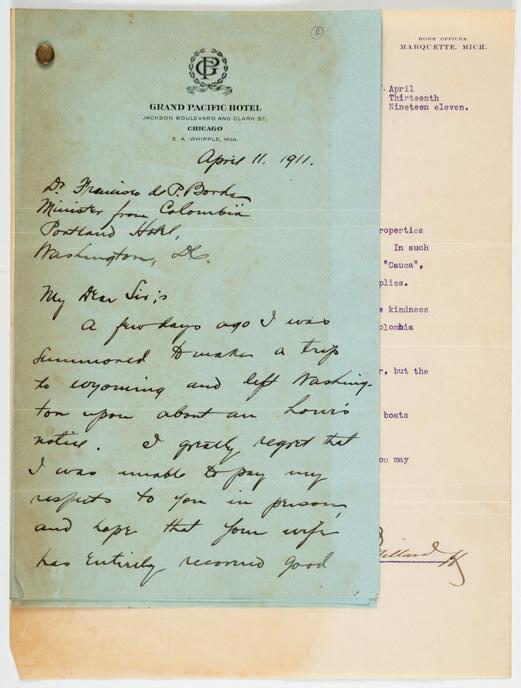 2
GP
GRAND PACIFIC HOTEL
JACKSON BOULEVARD AND CLARK ST.
CHICAGO
E. A. WHIPPLE, MGR.
April 11. 1911.
Dr. Francisco de P. Borda
Minister from Colombia
Portland Hotel,
Washington, D.C.
My Dear Sir;
A few days ago I was
summoned to make a trip
to wyoming and left Washing-
ton upon about an hours
notice. I greatly regret that
I was unable to pay my
respects to you in person,
and hope that your wife
has entirely recovered good
HOME OFFICES
MARQUETTE, MICH.
April
Thirteenth
Nineteen eleven.
roperties
In such
"Cauca",
plies.
kindness
olombia
r, but the
boats
ou may